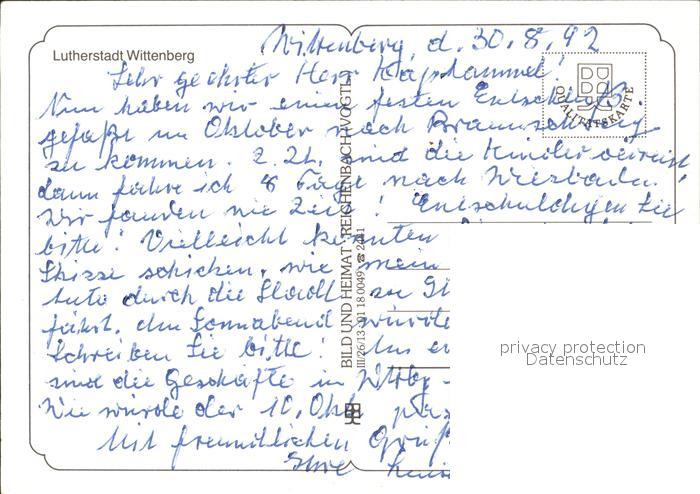 Lutherstadt Wittenberg
Wittenberg, d. 30.8.92
Sehr geehrter Herr
Nun haben wir einen festen Entschluß
gefaßt im Oktober nach Braunschweig
zu kommen. Z. Zt. sind die Kinder verreist
dann fahre ich 8 Tage nach Wiesbaden.
Wir fanden nie Zeit! Entschuldigen Sie
bitte! Vielleicht könnten
Skizze schicken, wie mein
Auto durch die Stadt zu
fährt. Am Sonnabend würde
Schreiben Sie bitte!
sind die Geschäfte in Wittbg
Wie würde der 10. Okt.
Mit freundlichen Grüß
Ihre
QUALITÄTSKARTE
BILD UND HEIMAT REICHENBACH (VOGTL)
III/26/13 01 18 0049 ☎ 2411
privacy protection
Datenschutz